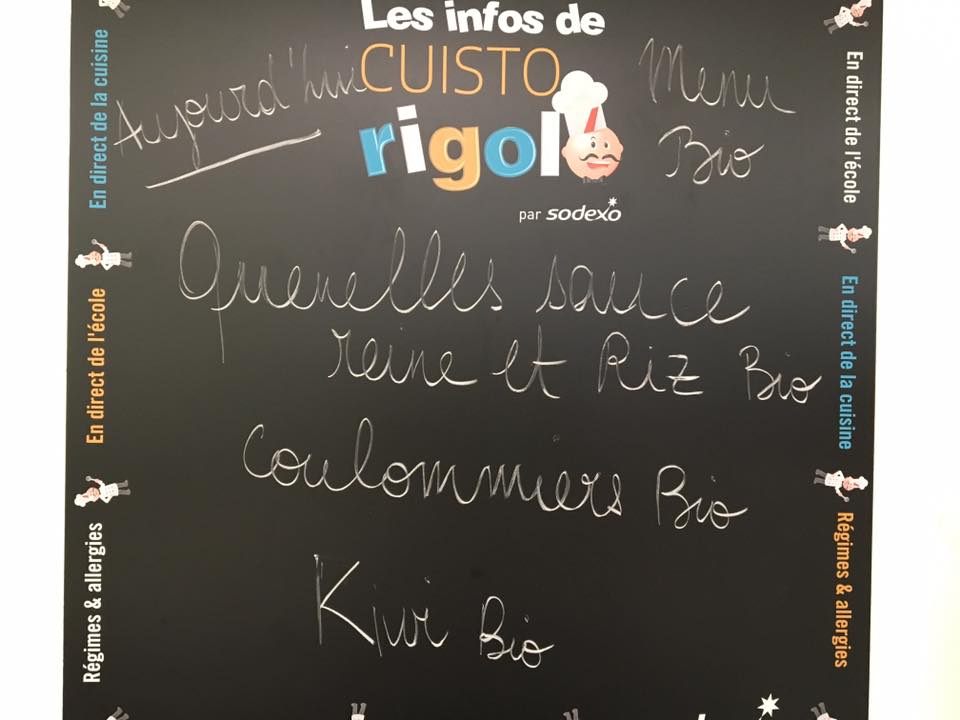 Les infos de
CUISTO
rigolo
par sodexo
Aujourd'hui
Menu
Bio
Quenelles sauce
reine et Riz Bio
Coulommiers Bio
Kiwi Bio
En direct de la cuisine
En direct de l'école
Régimes & allergies
En direct de l'école
En direct de la cuisine
Régimes & allergies